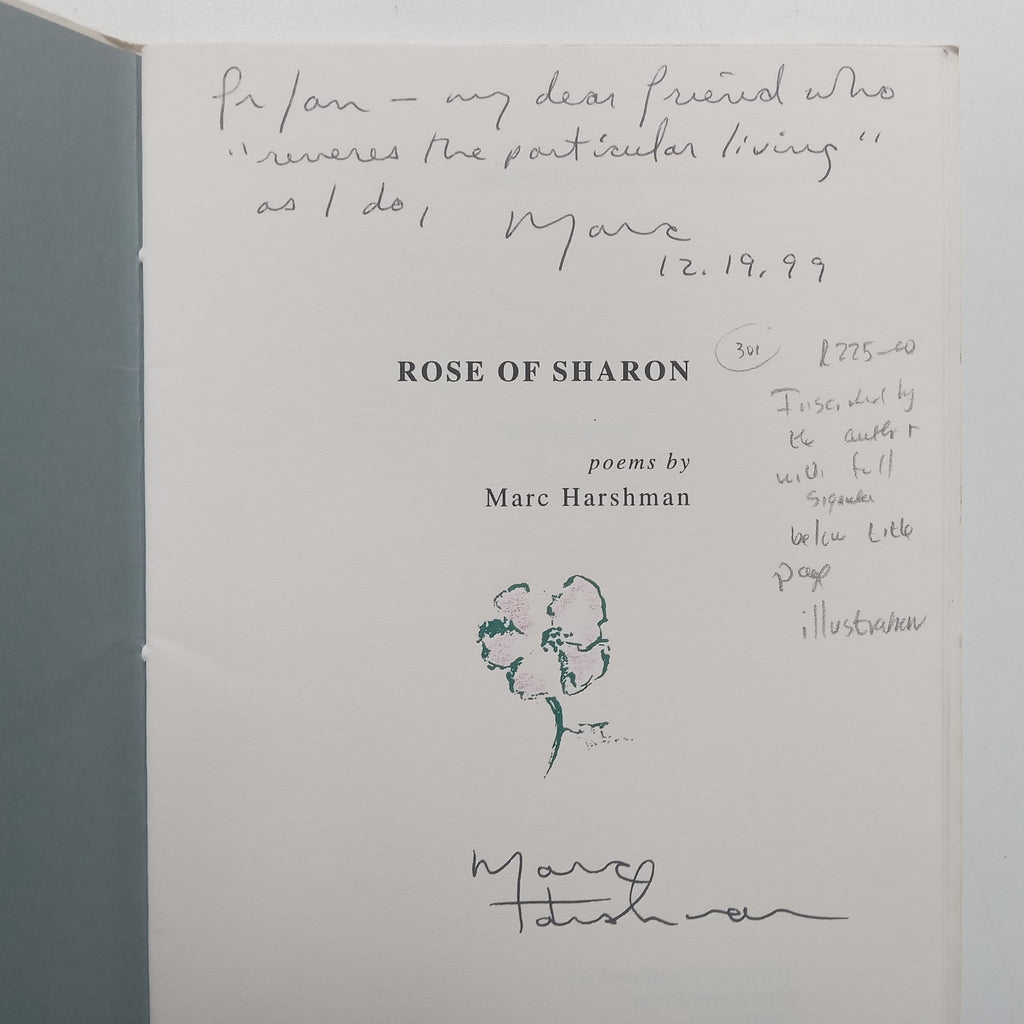 for Jan – my dear friend who
"reveres the particular living"
as I do,
Marc
12.19.99
ROSE OF SHARON
301
R225-00
Inscribed by
the author
with full
signature
below title
page
illustration
poems by
Marc Harshman
Marc
Harshman